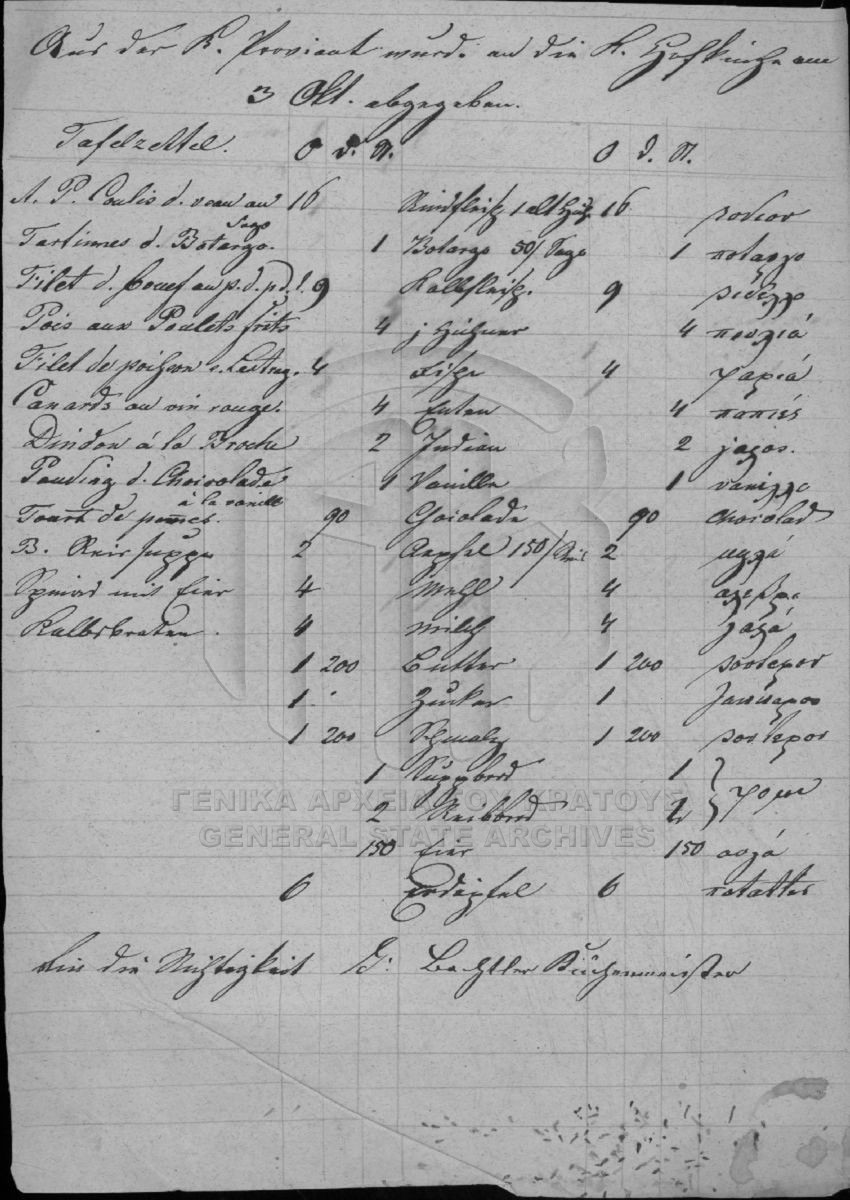 Aus der K. Proviant wurde an die K. Hofküche am
3 Okt. abgegeben.
Tafelzettel. O d. St. O d. St.
A. P. Coulis d. veau au 16 Rindfleisch 1 alt 16
Sago
Tartinnes d. Botargo. 1 Botargo 50/ Sago 1 ποταργο
Filet d. boeuf au p. d. 9 Kalbfleisch. 9
Pois aux Poulets frits 4 j Hühner 4 πουλιά
Filet de poisson 4 Fische 4 ψαριά
Canards au vin rouge. 4 Enten 4 παπιές
Dindon á la Broche 2 Indian 2
Pouding d. Chocolade 1 Vanille 1 vaniλλε
à la vanille
Tourt de pomes. 90 Chocolade 90 chocolad
B. Reis suppe 2 Aepfel 150/ Reis 2 μηλά
Spinad mit Eier 4 Mehl 4 αλεβρι
Kalbsbraten. 4 Milch 4 γαλά
1 200 Butter 1 200 βουτερον
1 Zucker 1 ζαπχαρου
1 200 Schmalz 1 200 βουτερον
1 Suppbrod 1
2 Reibbrod 2 ψομι
150 Eier 150 αυγά
6 Erdäpfel 6 πατattes
Für die Richtigkeit G: Bechtler Küchenmeister
ΓΕΝΙΚΑ ΑΡΧΕΙΑ ΤΟΥ ΚΡΑΤΟΥΣ
GENERAL STATE ARCHIVES